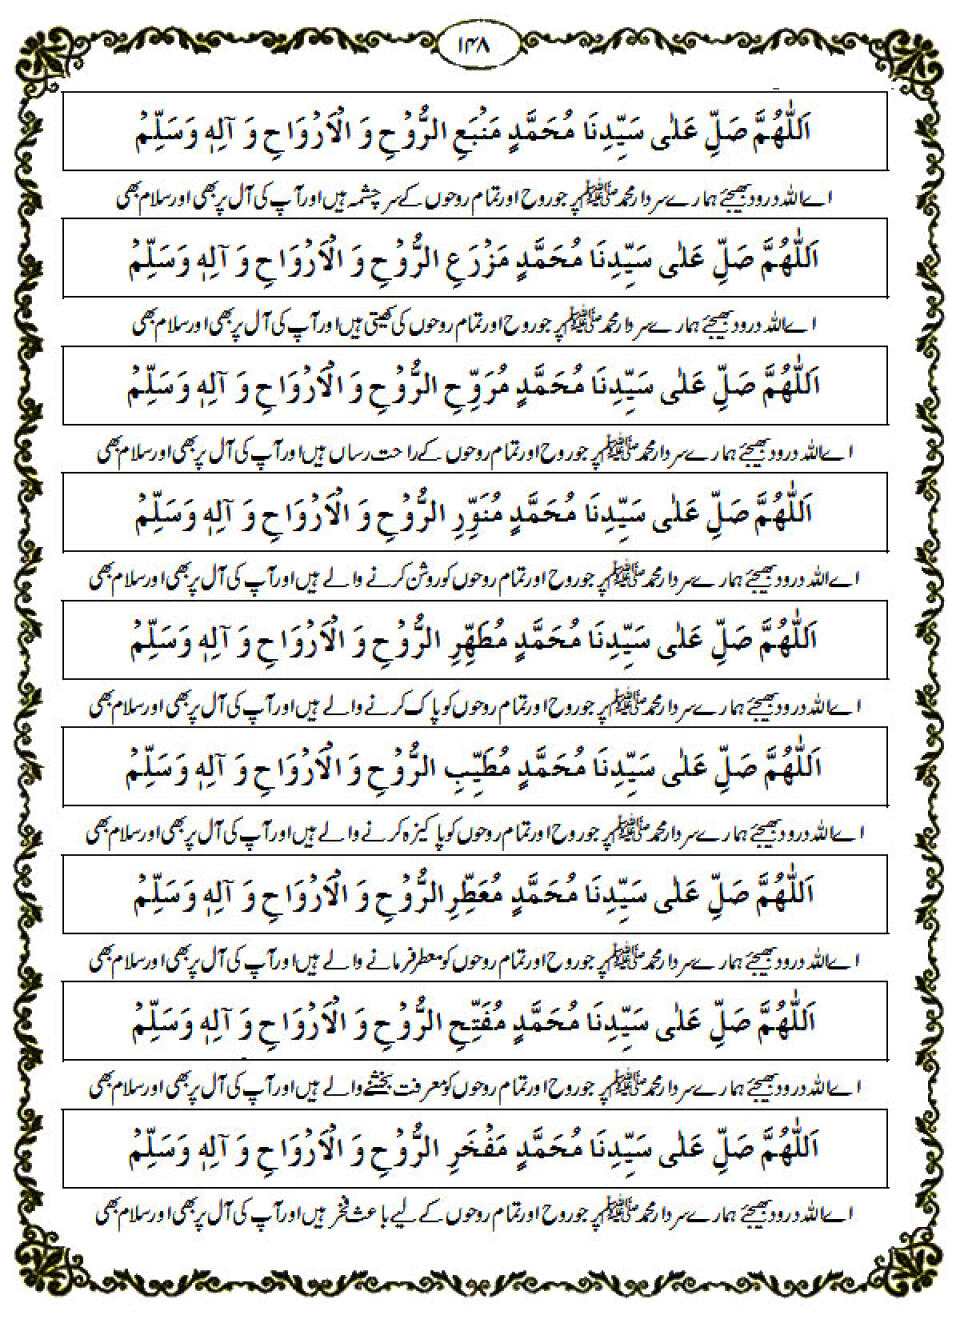 ۱۴۸
اَللّٰهُمَّ صَلِّ عَلٰی سَیِّدِنَا مُحَمَّدٍ مَنْبَعِ الرُّوْحِ وَ الْاَرْوَاحِ وَ آلِهٖ وَسَلِّمْ
اے اللہ درود بھیجئے ہمارے سردار محمد ﷺ پر جو روح اور تمام روحوں کے سرچشمہ ہیں اور آپ کی آل پر بھی اور سلام بھی
اَللّٰهُمَّ صَلِّ عَلٰی سَیِّدِنَا مُحَمَّدٍ مَزْرَعِ الرُّوْحِ وَ الْاَرْوَاحِ وَ آلِهٖ وَسَلِّمْ
اے اللہ درود بھیجئے ہمارے سردار محمد ﷺ پر جو روح اور تمام روحوں کی کھیتی ہیں اور آپ کی آل پر بھی اور سلام بھی
اَللّٰهُمَّ صَلِّ عَلٰی سَیِّدِنَا مُحَمَّدٍ مُرَوِّحِ الرُّوْحِ وَ الْاَرْوَاحِ وَ آلِهٖ وَسَلِّمْ
اے اللہ درود بھیجئے ہمارے سردار محمد ﷺ پر جو روح اور تمام روحوں کے راحت رساں ہیں اور آپ کی آل پر بھی اور سلام بھی
اَللّٰهُمَّ صَلِّ عَلٰی سَیِّدِنَا مُحَمَّدٍ مُنَوِّرِ الرُّوْحِ وَ الْاَرْوَاحِ وَ آلِهٖ وَسَلِّمْ
اے اللہ درود بھیجئے ہمارے سردار محمد ﷺ پر جو روح اور تمام روحوں کو روشن کرنے والے ہیں اور آپ کی آل پر بھی اور سلام بھی
اَللّٰهُمَّ صَلِّ عَلٰی سَیِّدِنَا مُحَمَّدٍ مُطَهِّرِ الرُّوْحِ وَ الْاَرْوَاحِ وَ آلِهٖ وَسَلِّمْ
اے اللہ درود بھیجئے ہمارے سردار محمد ﷺ پر جو روح اور تمام روحوں کو پاک کرنے والے ہیں اور آپ کی آل پر بھی اور سلام بھی
اَللّٰهُمَّ صَلِّ عَلٰی سَیِّدِنَا مُحَمَّدٍ مُطَیِّبِ الرُّوْحِ وَ الْاَرْوَاحِ وَ آلِهٖ وَسَلِّمْ
اے اللہ درود بھیجئے ہمارے سردار محمد ﷺ پر جو روح اور تمام روحوں کو پاکیزہ کرنے والے ہیں اور آپ کی آل پر بھی اور سلام بھی
اَللّٰهُمَّ صَلِّ عَلٰی سَیِّدِنَا مُحَمَّدٍ مُعَطِّرِ الرُّوْحِ وَ الْاَرْوَاحِ وَ آلِهٖ وَسَلِّمْ
اے اللہ درود بھیجئے ہمارے سردار محمد ﷺ پر جو روح اور تمام روحوں کو معطر فرمانے والے ہیں اور آپ کی آل پر بھی اور سلام بھی
اَللّٰهُمَّ صَلِّ عَلٰی سَیِّدِنَا مُحَمَّدٍ مُفَتِّحِ الرُّوْحِ وَ الْاَرْوَاحِ وَ آلِهٖ وَسَلِّمْ
اے اللہ درود بھیجئے ہمارے سردار محمد ﷺ پر جو روح اور تمام روحوں کو معرفت بخشنے والے ہیں اور آپ کی آل پر بھی اور سلام بھی
اَللّٰهُمَّ صَلِّ عَلٰی سَیِّدِنَا مُحَمَّدٍ مَفْخَرِ الرُّوْحِ وَ الْاَرْوَاحِ وَ آلِهٖ وَسَلِّمْ
اے اللہ درود بھیجئے ہمارے سردار محمد ﷺ پر جو روح اور تمام روحوں کے لیے باعث فخر ہیں اور آپ کی آل پر بھی اور سلام بھی